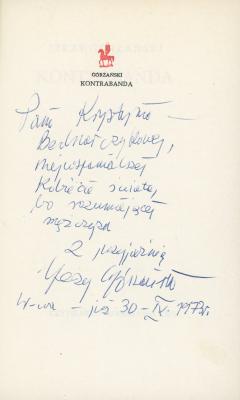 GÓRZAŃSKI
KONTRABANDA
Pani Krystynie
Bednarczykowej,
najwspanialszej
kobiecie świata,
bo rozumiejącej
mężczyzn
z przyjaźnią
Jerzy Górzański
W-wa – 30-IX. 1973r.